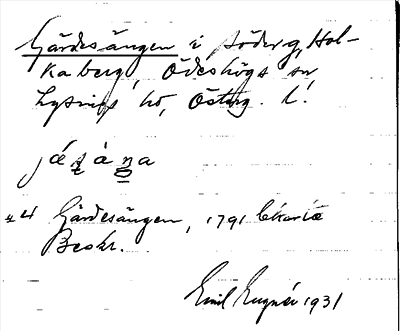 Gärdesängen i Söderg, Hol-
kaberg, Ödeshögs sn
Lysings hd, Österg. l.
Gärdesängen, 1791
Beskr.
Emil 1931